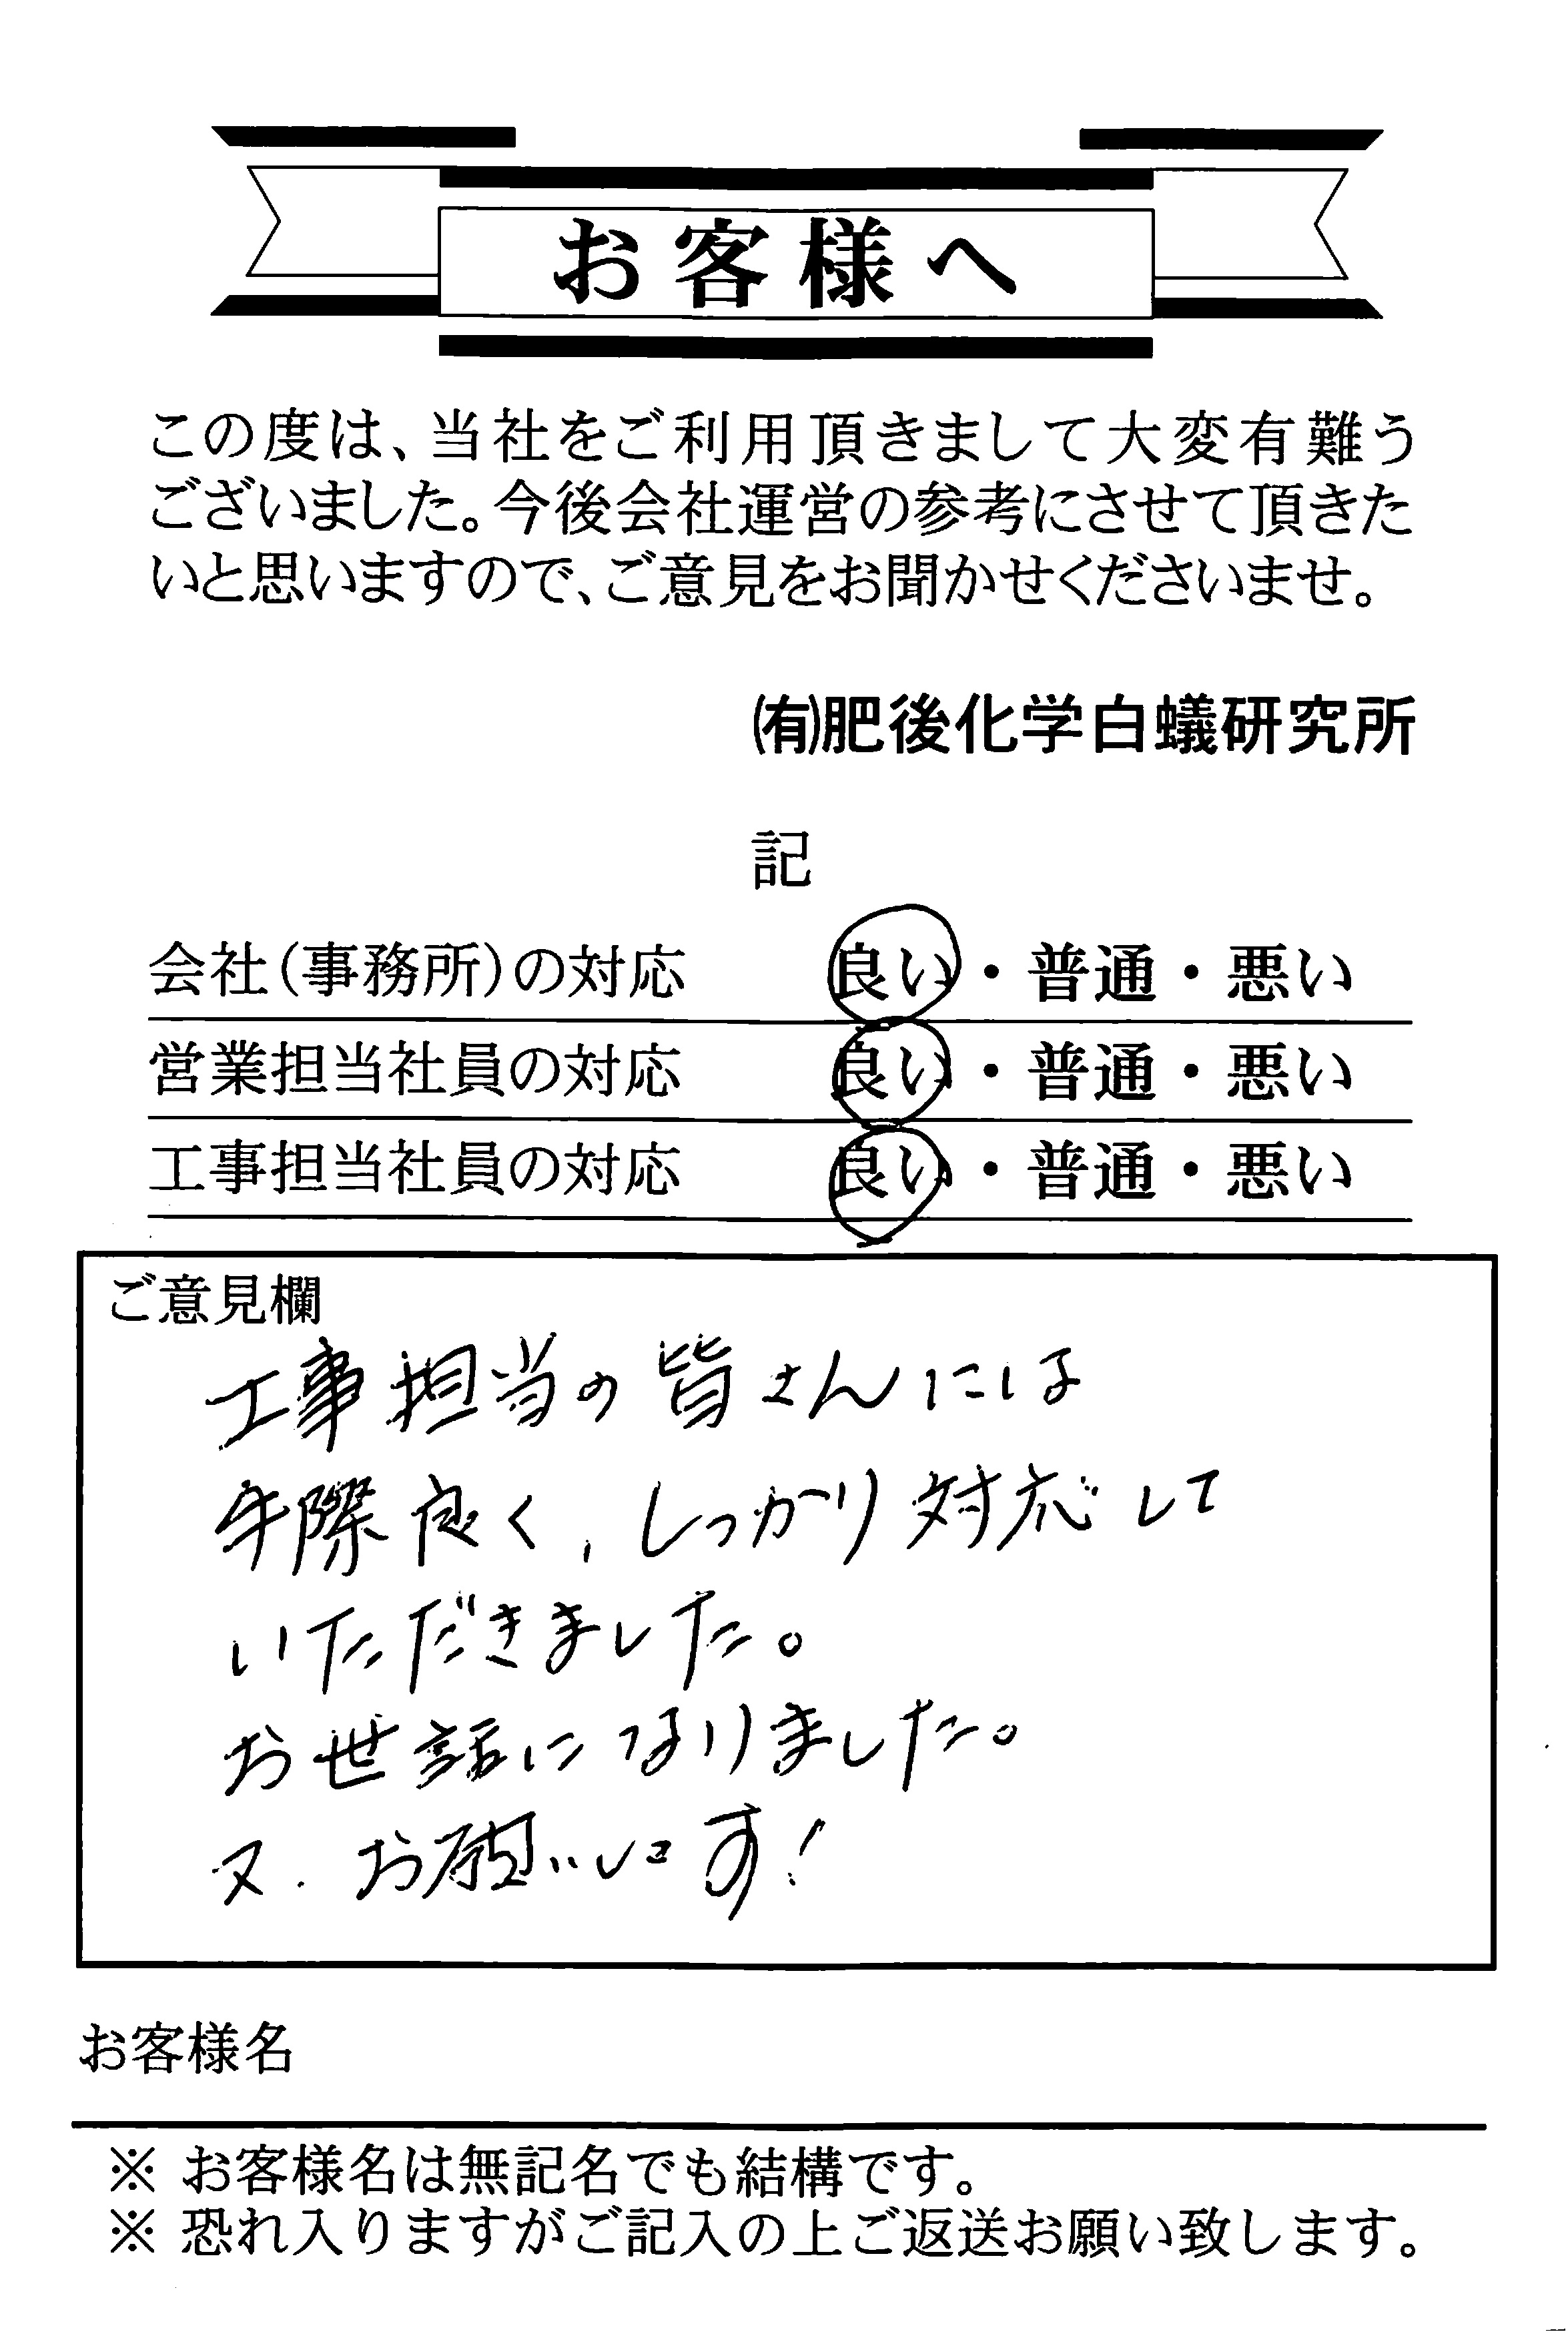 お客様へ
この度は、当社をご利用頂きまして大変有難う
ございました。今後会社運営の参考にさせて頂きた
いと思いますので、ご意見をお聞かせくださいませ。
㈲肥後化学白蟻研究所
記
会社(事務所)の対応 良い・普通・悪い
営業担当社員の対応 良い・普通・悪い
工事担当社員の対応 良い・普通・悪い
ご意見欄
工事担当の皆さんには
手際良く、しっかり対応して
いただきました。
お世話になりました。
又、お願いします!
お客様名
※ お客様名は無記名でも結構です。
※ 恐れ入りますがご記入の上ご返送お願い致します。